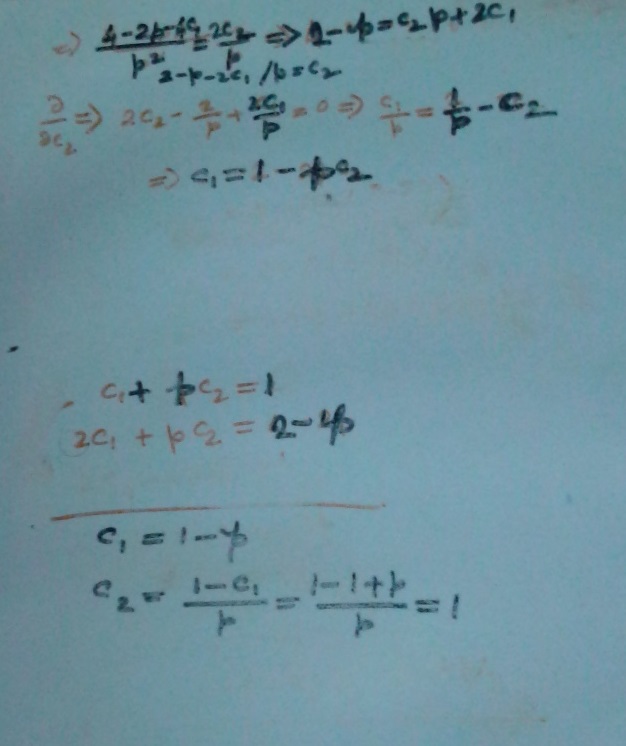 => (4-2p-4c₁)/p² = 2c₂/p => 2-p = c₂p + 2c₁
2-p-2c₁/p = c₂
∂/∂c₂ => 2c₂ - 2/p + 2c₁/p = 0 => c₁/p = 1/p - c₂
=> c₁ = 1 - pc₂
c₁ + pc₂ = 1
2c₁ + pc₂ = 2-p
c₁ = 1-p
c₂ = (1-c₁)/p = (1-1+p)/p = 1